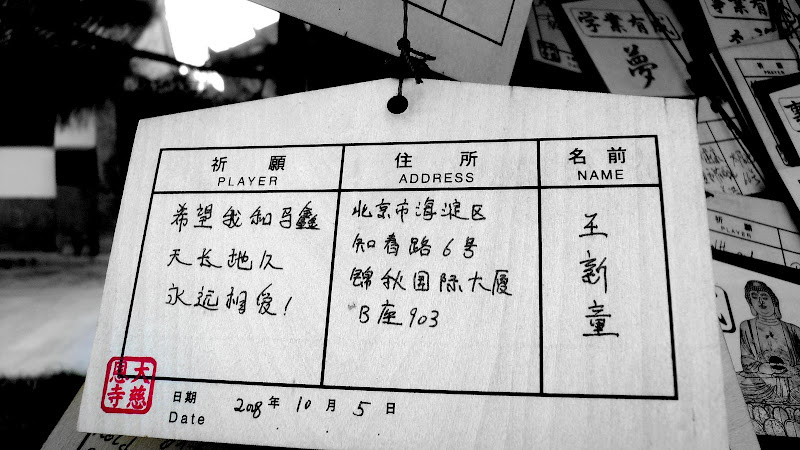 祈願
PLAYER
住所
ADDRESS
名前
NAME
希望我和马鑫
天长地久
永远相爱!
北京市海淀区
知春路6号
锦秋国际大厦
B座903
王新童
大慈恩寺
日期
Date
2008年10月5日
学業有成
夢
PRAYER
祈願
PLAYER